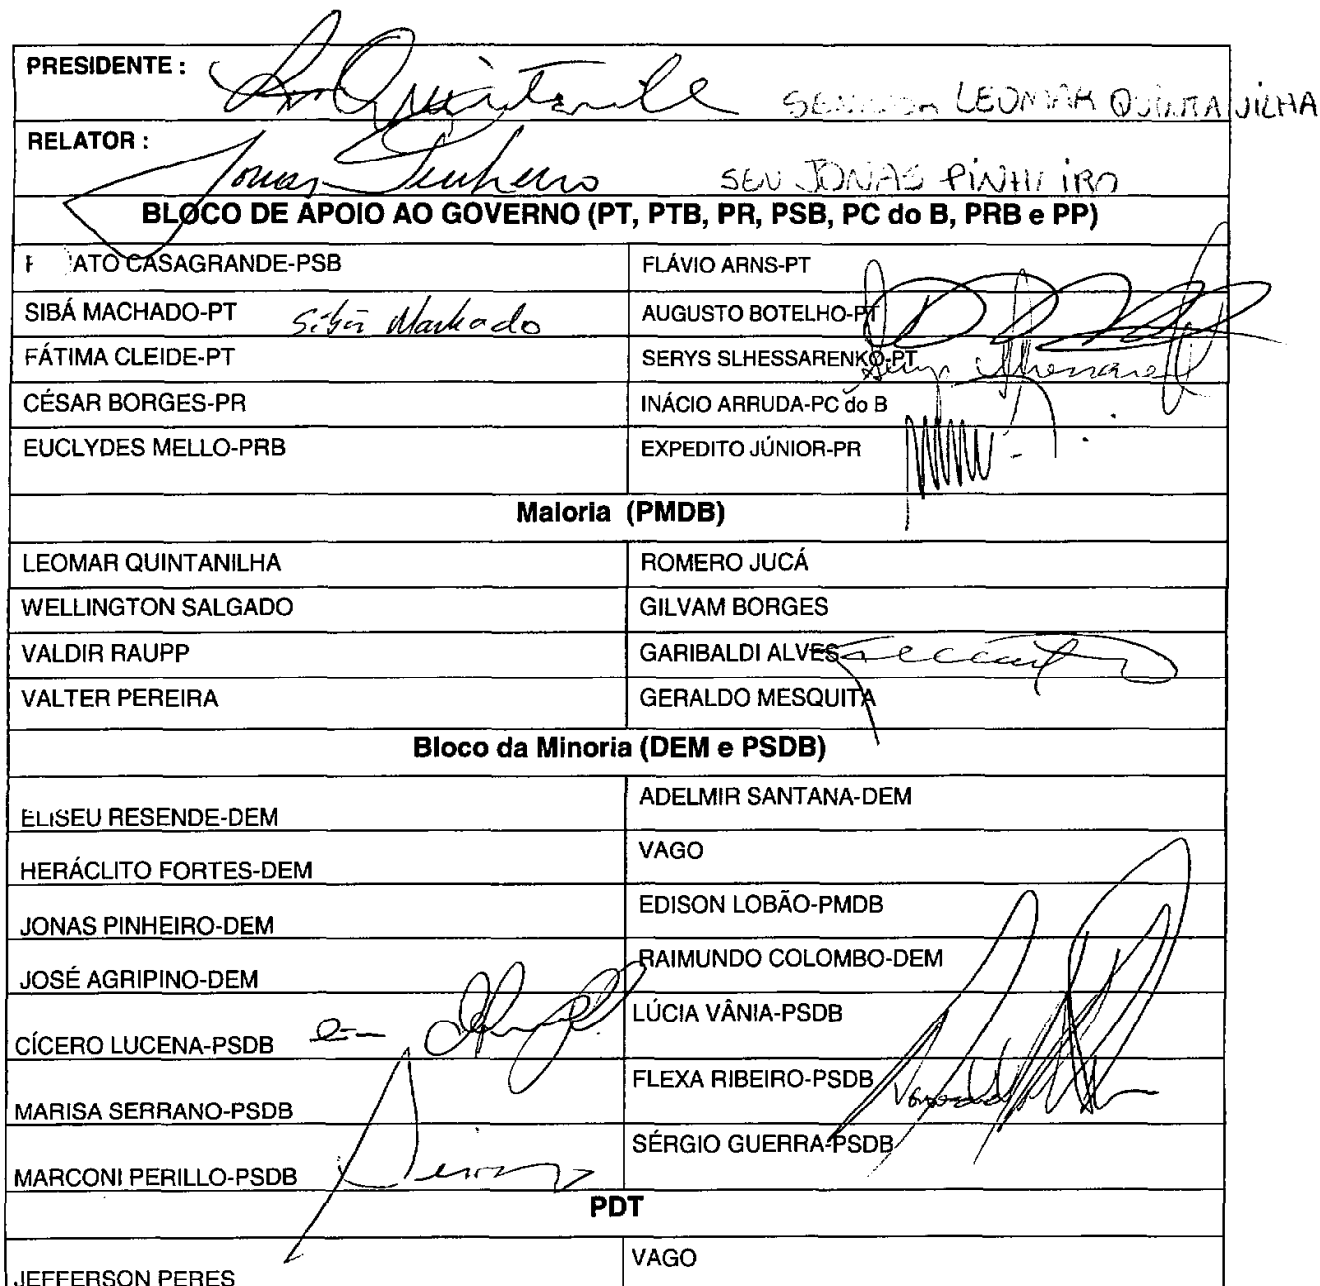 PRESIDENTE :
SENADOR LEOMAR QUINTANILHA
RELATOR :
Jonas Pinheiro SEN JONAS PINHEIRO
BLOCO DE APOIO AO GOVERNO (PT, PTB, PR, PSB, PC do B, PRB e PP)
CASAGRANDE-PSB FLÁVIO ARNS-PT
SIBÁ MACHADO-PT Sibá Machado AUGUSTO BOTELHO-PT
FÁTIMA CLEIDE-PT SERYS SLHESSARENKO-PT
CÉSAR BORGES-PR INÁCIO ARRUDA-PC do B
EUCLYDES MELLO-PRB EXPEDITO JÚNIOR-PR
Maioria (PMDB)
LEOMAR QUINTANILHA ROMERO JUCÁ
WELLINGTON SALGADO GILVAM BORGES
VALDIR RAUPP GARIBALDI ALVES
VALTER PEREIRA GERALDO MESQUITA
Bloco da Minoria (DEM e PSDB)
ELISEU RESENDE-DEM ADELMIR SANTANA-DEM
HERÁCLITO FORTES-DEM VAGO
JONAS PINHEIRO-DEM EDISON LOBÃO-PMDB
JOSÉ AGRIPINO-DEM RAIMUNDO COLOMBO-DEM
CÍCERO LUCENA-PSDB LÚCIA VÂNIA-PSDB
MARISA SERRANO-PSDB FLEXA RIBEIRO-PSDB
MARCONI PERILLO-PSDB SÉRGIO GUERRA-PSDB
PDT
JEFFERSON PERES VAGO